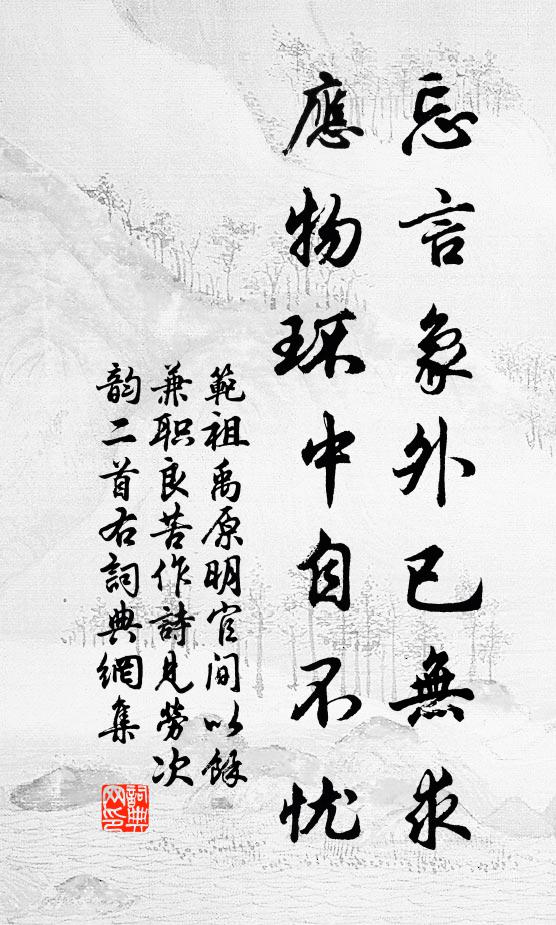 忘言象外已無求
應物环中自不忧
範祖禹原明官间以餘
兼职良苦作詩見勞次
韵二首右詞典網集
詞典网印